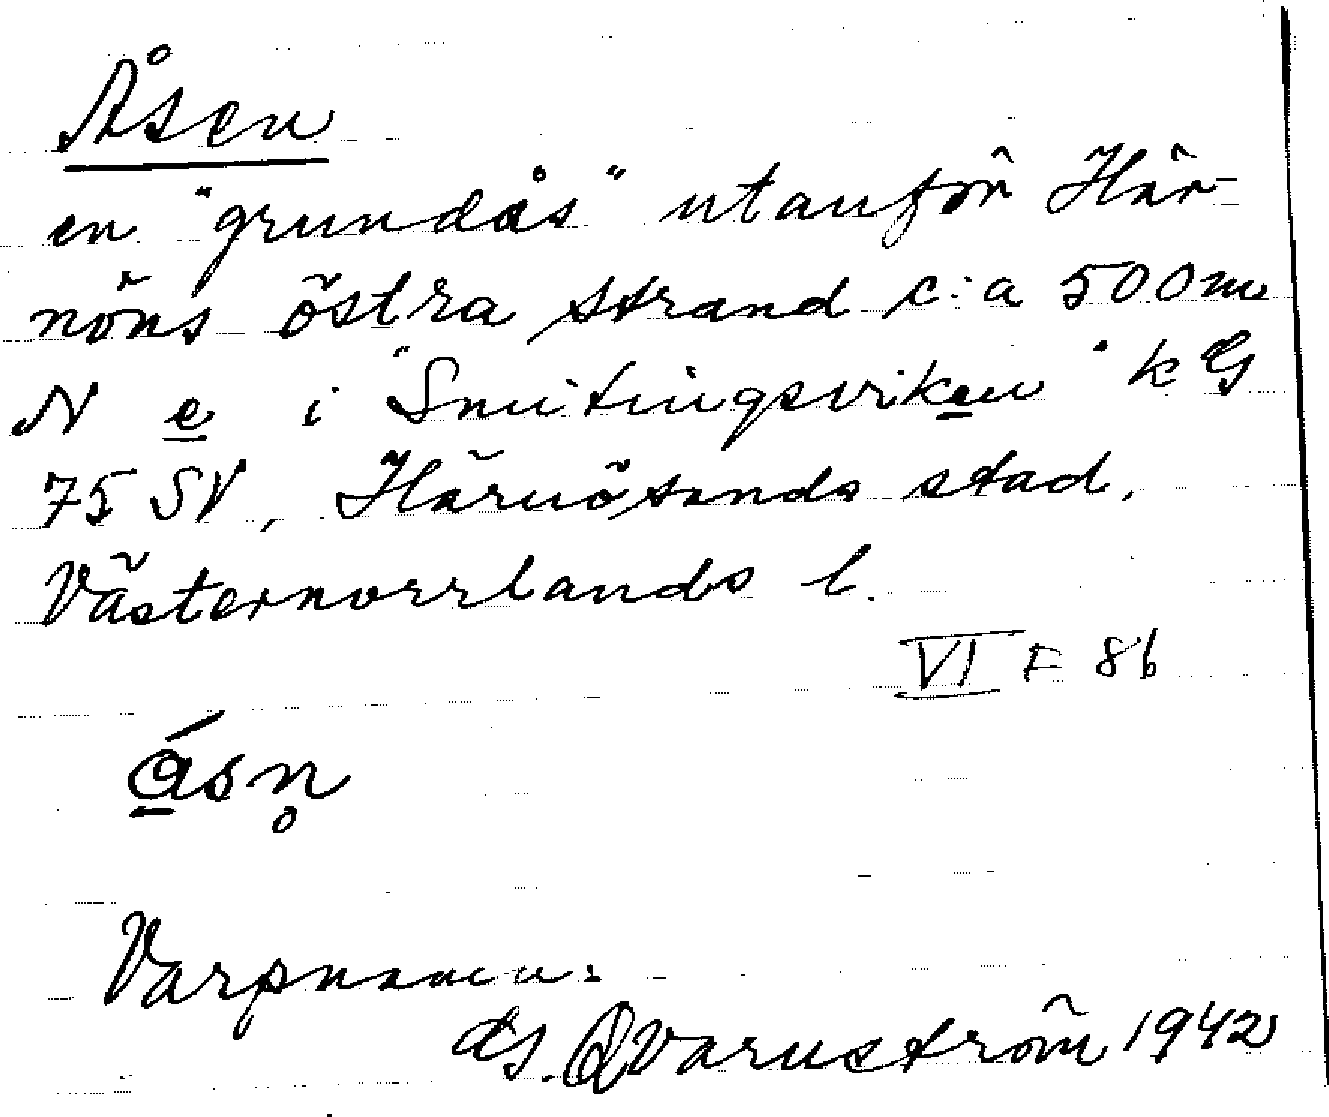 Åsen
en "grundås" utanför Här-
nöns östra strand c:a 500m
N e i "Smitingsviken" k G
75 SV, Härnösands stad,
Västernorrlands l.
VI F 8b
ásn̥
Varpnamn.
G. Qvarnström 1942